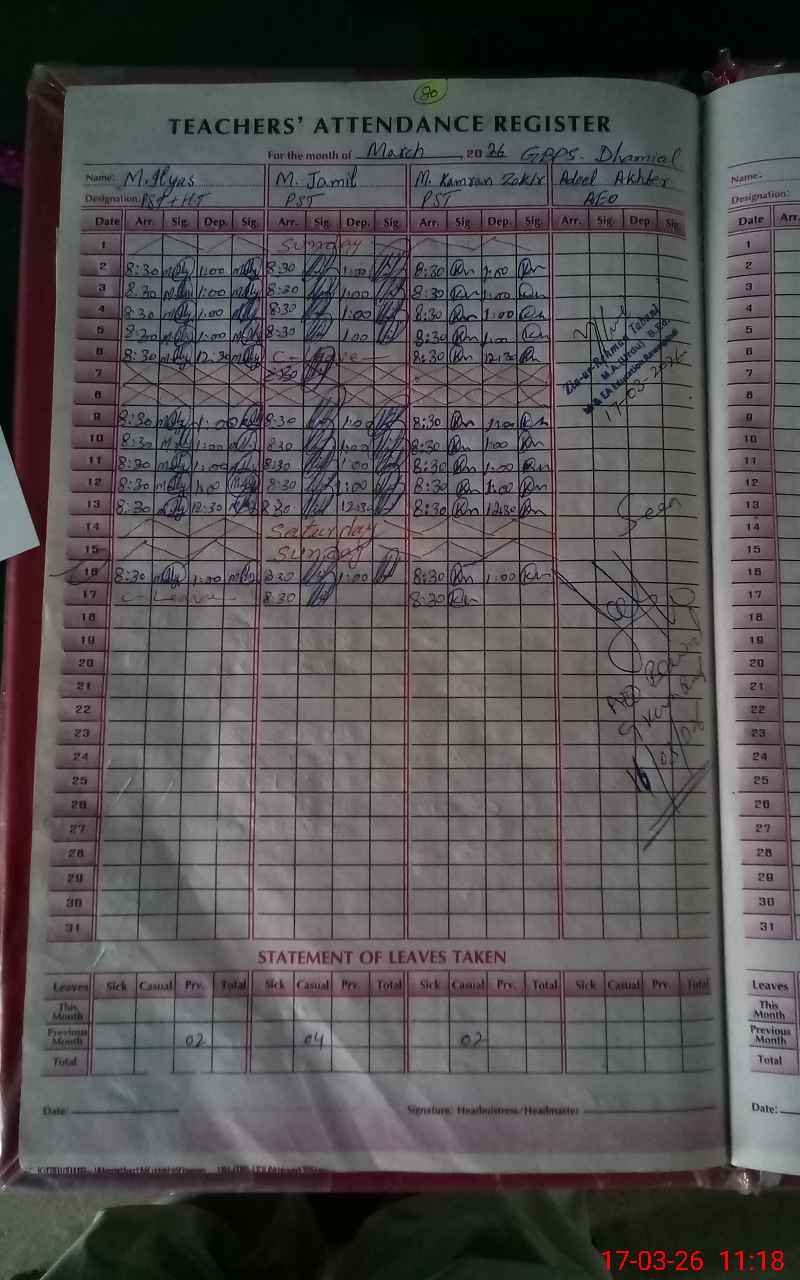 80
TEACHERS' ATTENDANCE REGISTER
For the month of March, 2026 GBPS. Dhamial
Name: M. Ilyas M. Jamil M. Kamran Zakir Adeel Akhter Name:
Designation: PST + HT PST PST AEO Designation:
Date Arr. Sig. Dep. Sig. Arr. Sig. Dep. Sig. Arr. Sig. Dep. Sig. Arr. Sig. Dep. Sig. Date Arr.
1 Sunday 1
2 8:30 1:00 8:30 1:00 8:30 1:00 2
3 8:30 1:00 8:30 1:00 8:30 1:00 3
4 8:30 1:00 8:30 1:00 8:30 1:00 4
5 8:30 1:00 8:30 1:00 8:30 1:00 5
6 8:30 12:30 C-Leave 8:30 12:30 6
7 8:30 7
8 8
17-03-2026
9 8:30 1:00 8:30 1:00 8:30 1:00 9
10 8:30 1:00 8:30 1:00 8:30 1:00 10
11 8:30 1:00 8:30 1:00 8:30 1:00 11
12 8:30 1:00 8:30 1:00 8:30 1:00 12
13 8:30 12:30 8:30 12:30 8:30 12:30 Seen 13
14 Saturday 14
15 Sunday 15
16 8:30 1:00 8:30 1:00 8:30 1:00 16
17 C-Leave 8:30 8:30 17
18 18
19 19
20 20
21 21
22 AEO 22
23 23
24 24
25 16/03/ 25
26 26
27 27
28 28
29 29
30 30
31 31
STATEMENT OF LEAVES TAKEN
Leaves Sick Casual Prv. Total Sick Casual Prv. Total Sick Casual Prv. Total Sick Casual Prv. Total Leaves
This Month This Month
Previous Month 02 04 02 Previous Month
Total Total
Date: Signature: Headmistress/Headmaster Date:
17-03-26 11:18